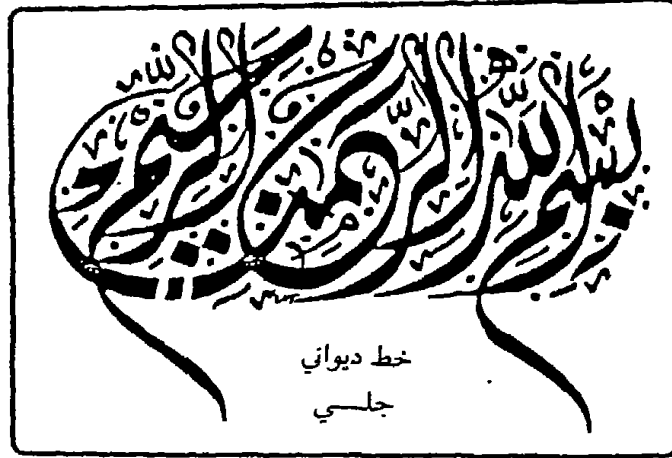 بسم الله الرحمن الرحيم
خط ديواني
جلـــي